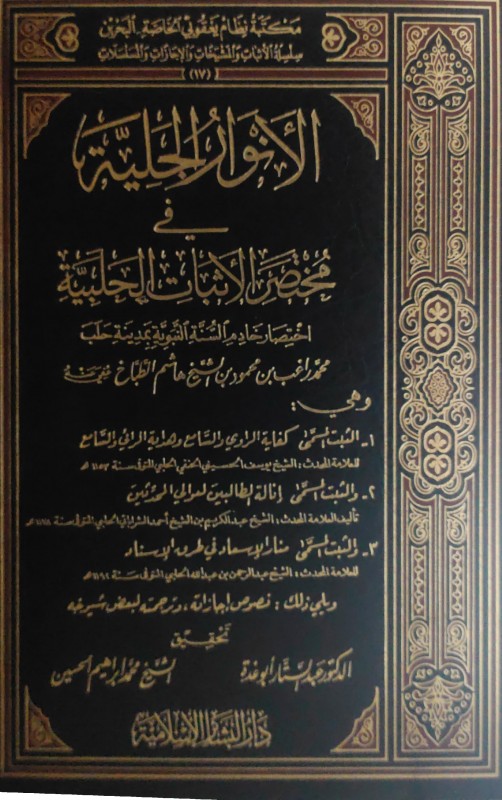 مكتبة نظام يعقوبي الخاصة - البحرين
سلسلة الأثبات والمشيخات والإجازات والمسلسلات
(١٧)
الأنوار الجلية
في
مختصر الأثبات الحلبية
اختصار خادم السنة النبوية بمدينة حلب
محمد راغب بن محمود بن الشيخ هاشم الطباخ
وهي:
١- الثبت المسمى كفاية الراوي والسامع وهداية الرائي والسامع
للعلامة المحدث: الشيخ يوسف الحسيني الحنفي الحلبي المتوفى سنة ١١٥٣ هـ
٢- والثبت المسمى إنالة الطالبين لعوالي المحدثين
تأليف العلامة المحدث: الشيخ عبد الكريم بن الشيخ أحمد الشراباتي الحلبي المتوفى سنة ١١٧٨ هـ
٣- والثبت المسمى منار الإسعاد في طرق الإسناد
للعلامة المحدث: الشيخ عبد الرحمن بن عبد الله الحلبي المتوفى سنة ١١٩٢ هـ
ويلي ذلك: نصوص إجازاته، وترجمته لبعض شيوخه
تحقيق
الدكتور عبد الستار أبو غدة الشيخ محمد إبراهيم الحسين
دار البشائر الإسلامية